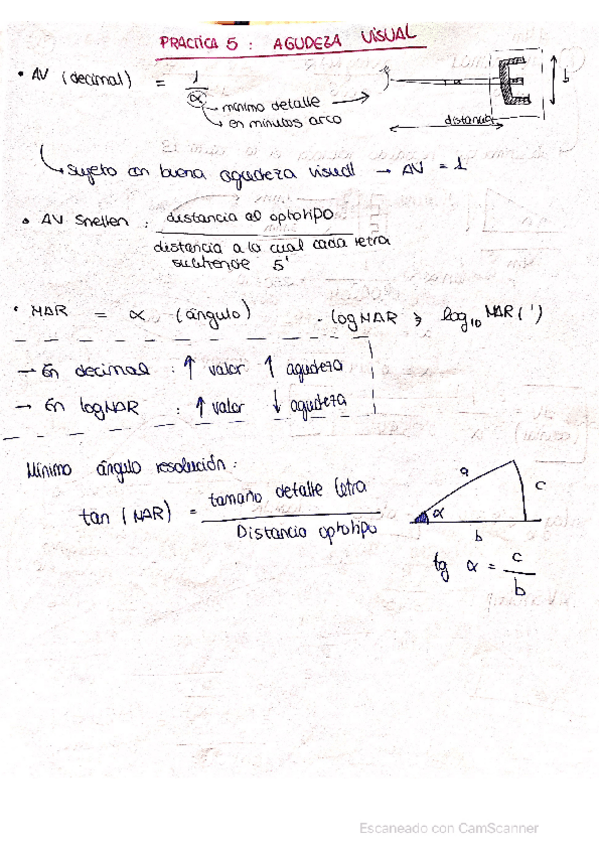 PRACTICA 5 : AGUDEZA VISUAL
• AV (decimal) = 1 / α
→ mínimo detalle
→ en minutos arco
α
E
b
distancia
↳ sujeto con buena agudeza visual → AV = 1
• AV Snellen : distancia al optotipo
distancia a la cual cada letra
subtiende 5'
• MAR = α (ángulo) · logMAR → log10 MAR (')
→ En decimal : ↑ valor ↑ agudeza
→ En logMAR : ↑ valor ↓ agudeza
Mínimo ángulo resolución :
tan (MAR) = tamaño detalle letra
Distancia optotipo
a
c
α
b
tg α = c / b
Escaneado con CamScanner